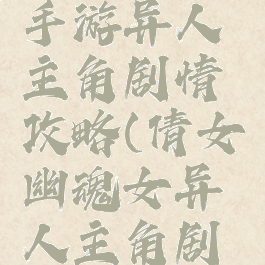 手游异人
主角剧情
攻略(倩女
幽魂女异
人主角剧